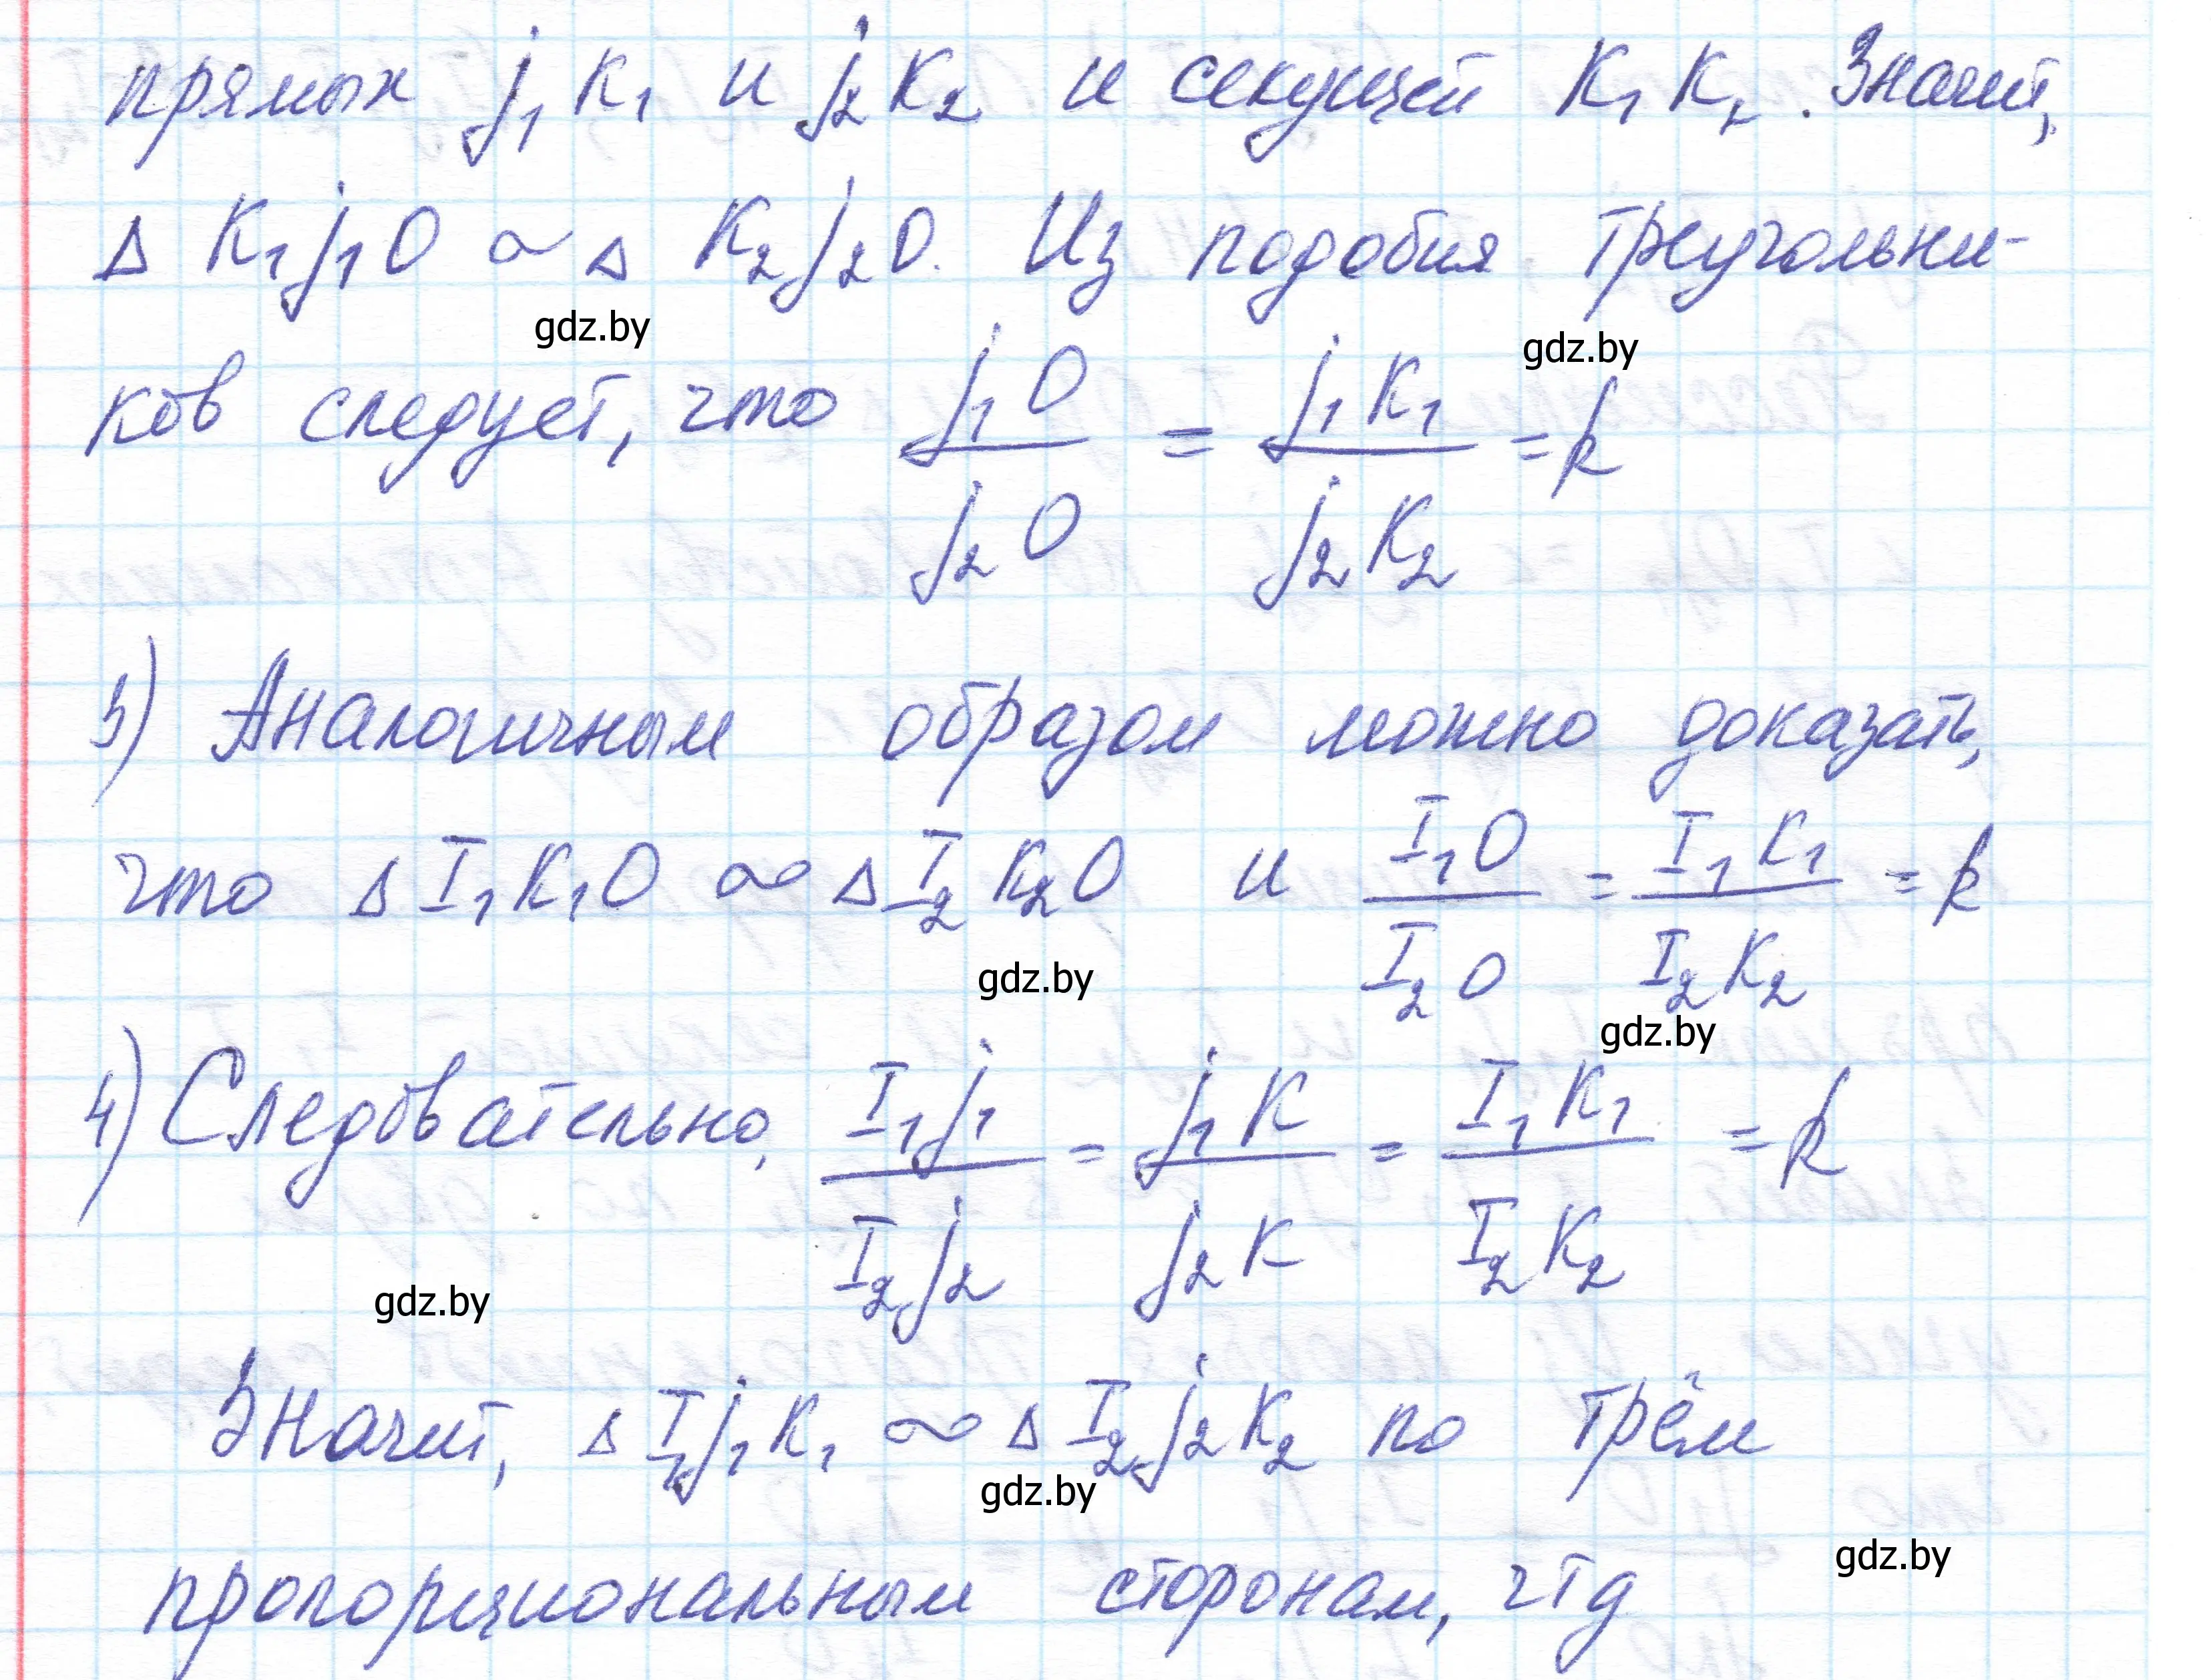 прямых j₁K₁ и j₂K₂ и секущей K₁K₂. Значит,
Δ K₁j₁O ∾ Δ K₂j₂O. Из подобия треугольни-
gdz.by
gdz.by
ков следует, что j₁O/j₂O = j₁K₁/j₂K₂ = k
3) Аналогичным образом можно доказать,
что Δ I₁K₁O ∾ Δ I₂K₂O и I₁O/I₂O = I₁K₁/I₂K₂ = k
gdz.by
gdz.by
4) Следовательно, I₁j₁/I₂j₂ = j₁K/j₂K = I₁K₁/I₂K₂ = k
gdz.by
Значит, Δ I₁j₁K₁ ∾ Δ I₂j₂K₂ по трём
gdz.by
gdz.by
пропорциональным сторонам, чтд